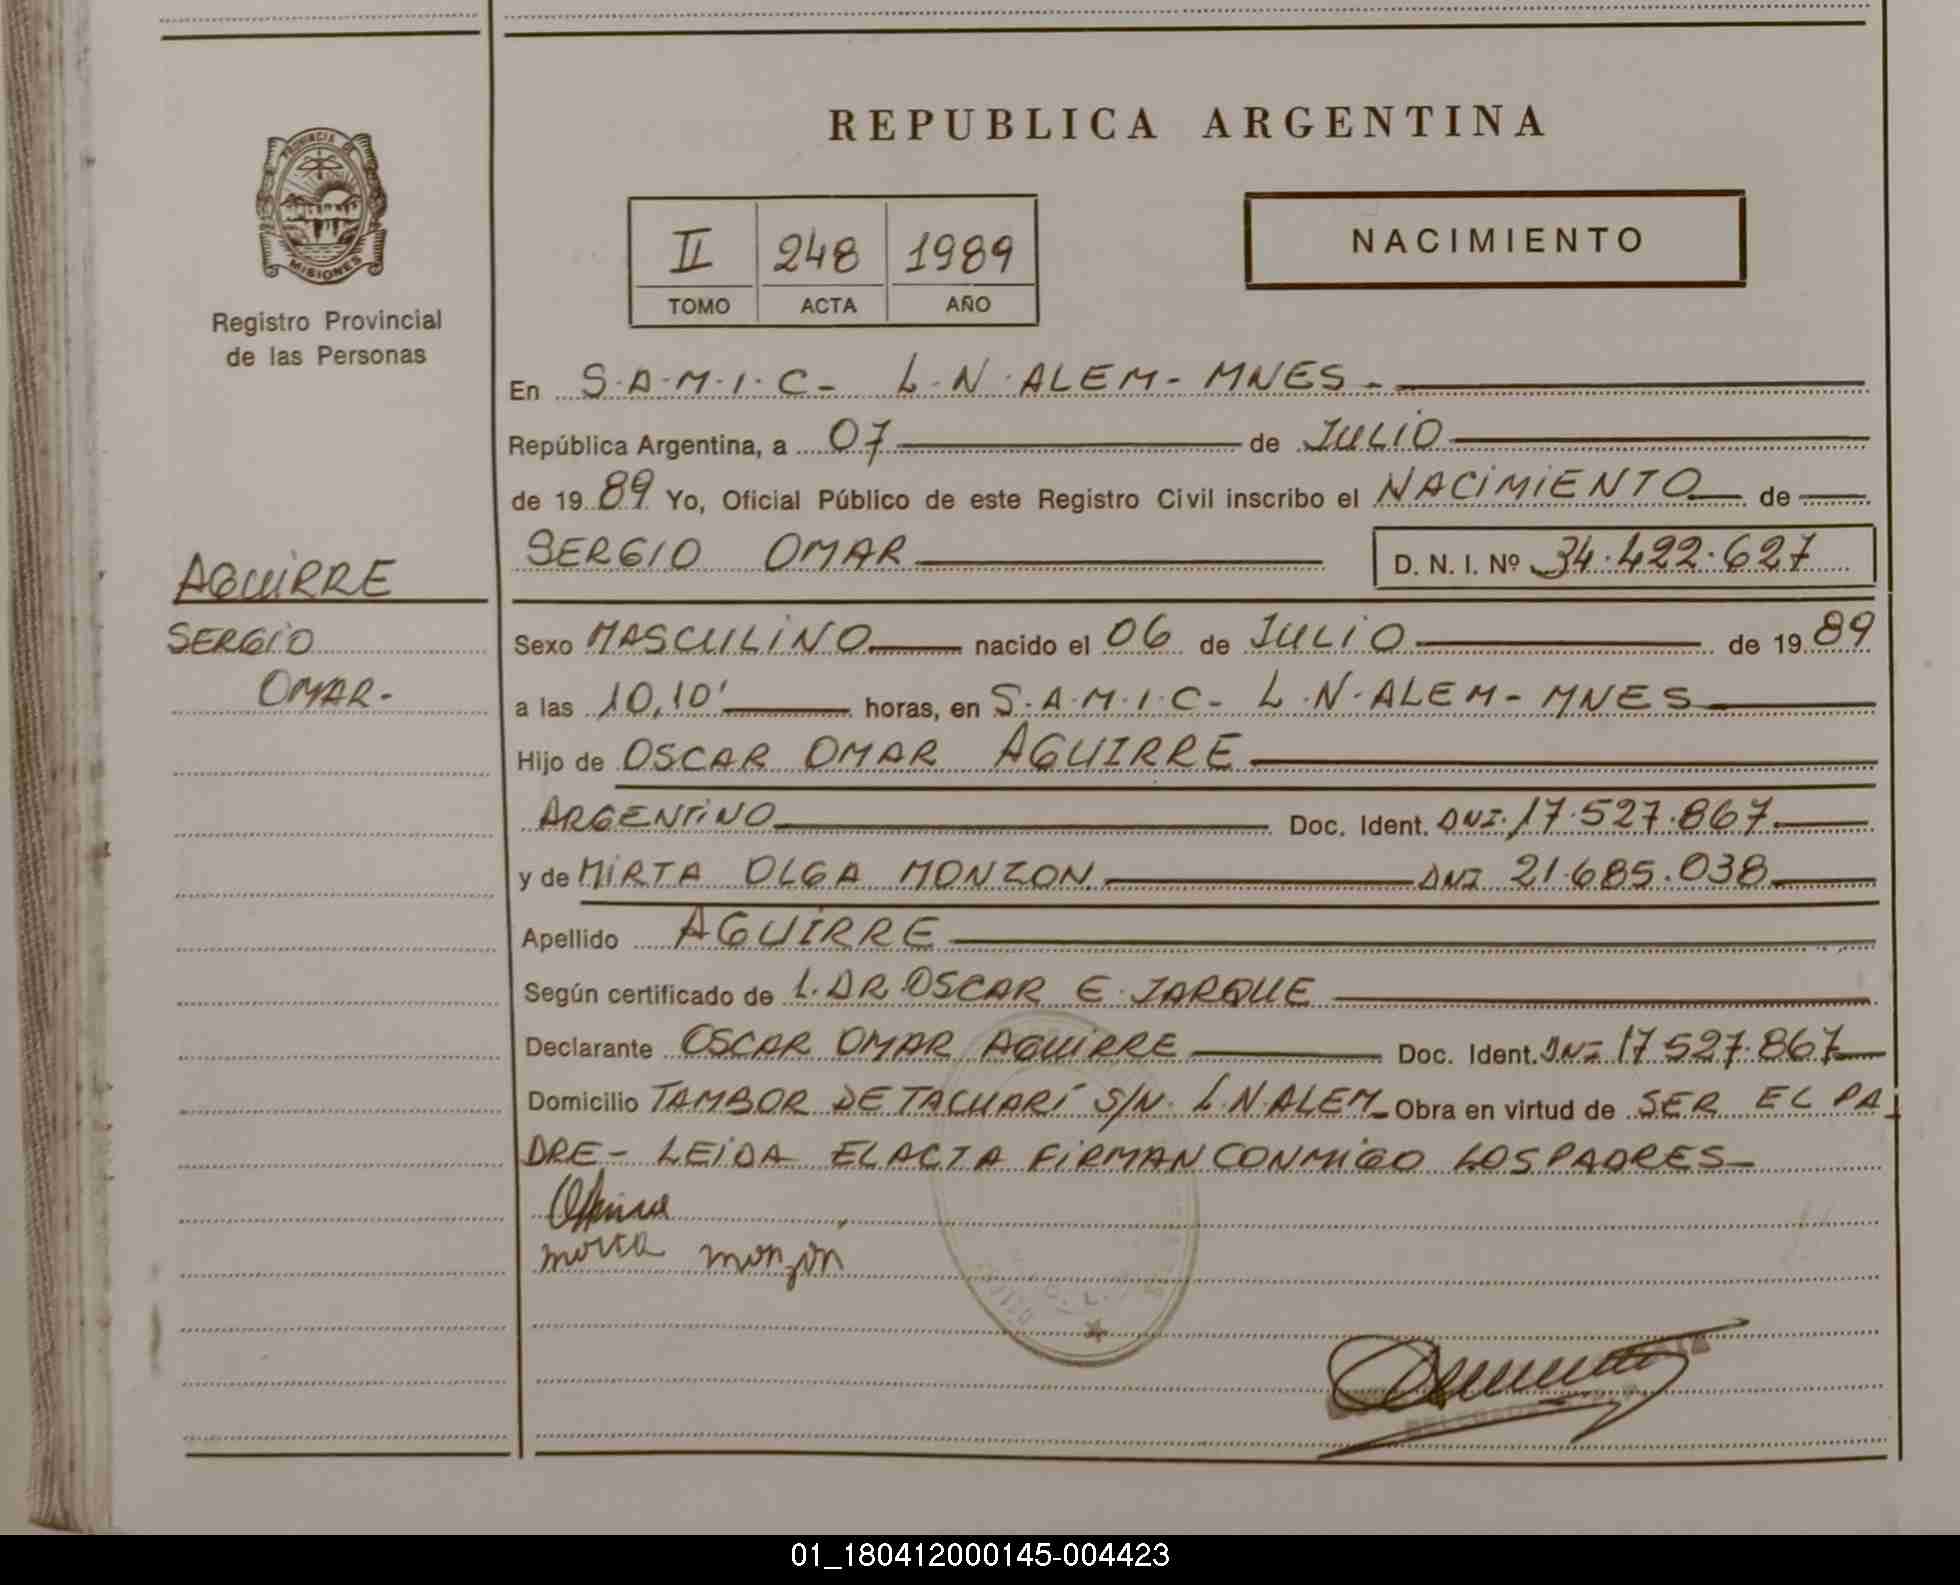 REPUBLICA ARGENTINA
PROVINCIA DE
MISIONES
Registro Provincial
de las Personas
II 248 1989
TOMO ACTA AÑO
NACIMIENTO
En S.A.M.I.C- L.N.ALEM- MNES-
República Argentina, a 07 de JULIO
de 1989 Yo, Oficial Público de este Registro Civil inscribo el NACIMIENTO de
SERGIO OMAR D. N. I. Nº 34.422.627
AGUIRRE
SERGIO
OMAR-
Sexo MASCULINO nacido el 06 de JULIO de 1989
a las 10,10' horas, en S.A.M.I.C- L.N.ALEM- MNES
Hijo de OSCAR OMAR AGUIRRE
ARGENTINO Doc. Ident. DNI. 17.527.867
y de MIRTA OLGA MONZON DNI 21.685.038
Apellido AGUIRRE
Según certificado de L. DR. OSCAR E. JARQUE
Declarante OSCAR OMAR AGUIRRE Doc. Ident. DNI 17527.867
Domicilio TAMBOR DE TACUARÍ S/N. L.N.ALEM- Obra en virtud de SER EL PA-
DRE- LEIDA EL ACTA FIRMAN CONMIGO LOS PADRES-
monzón
01_180412000145-004423